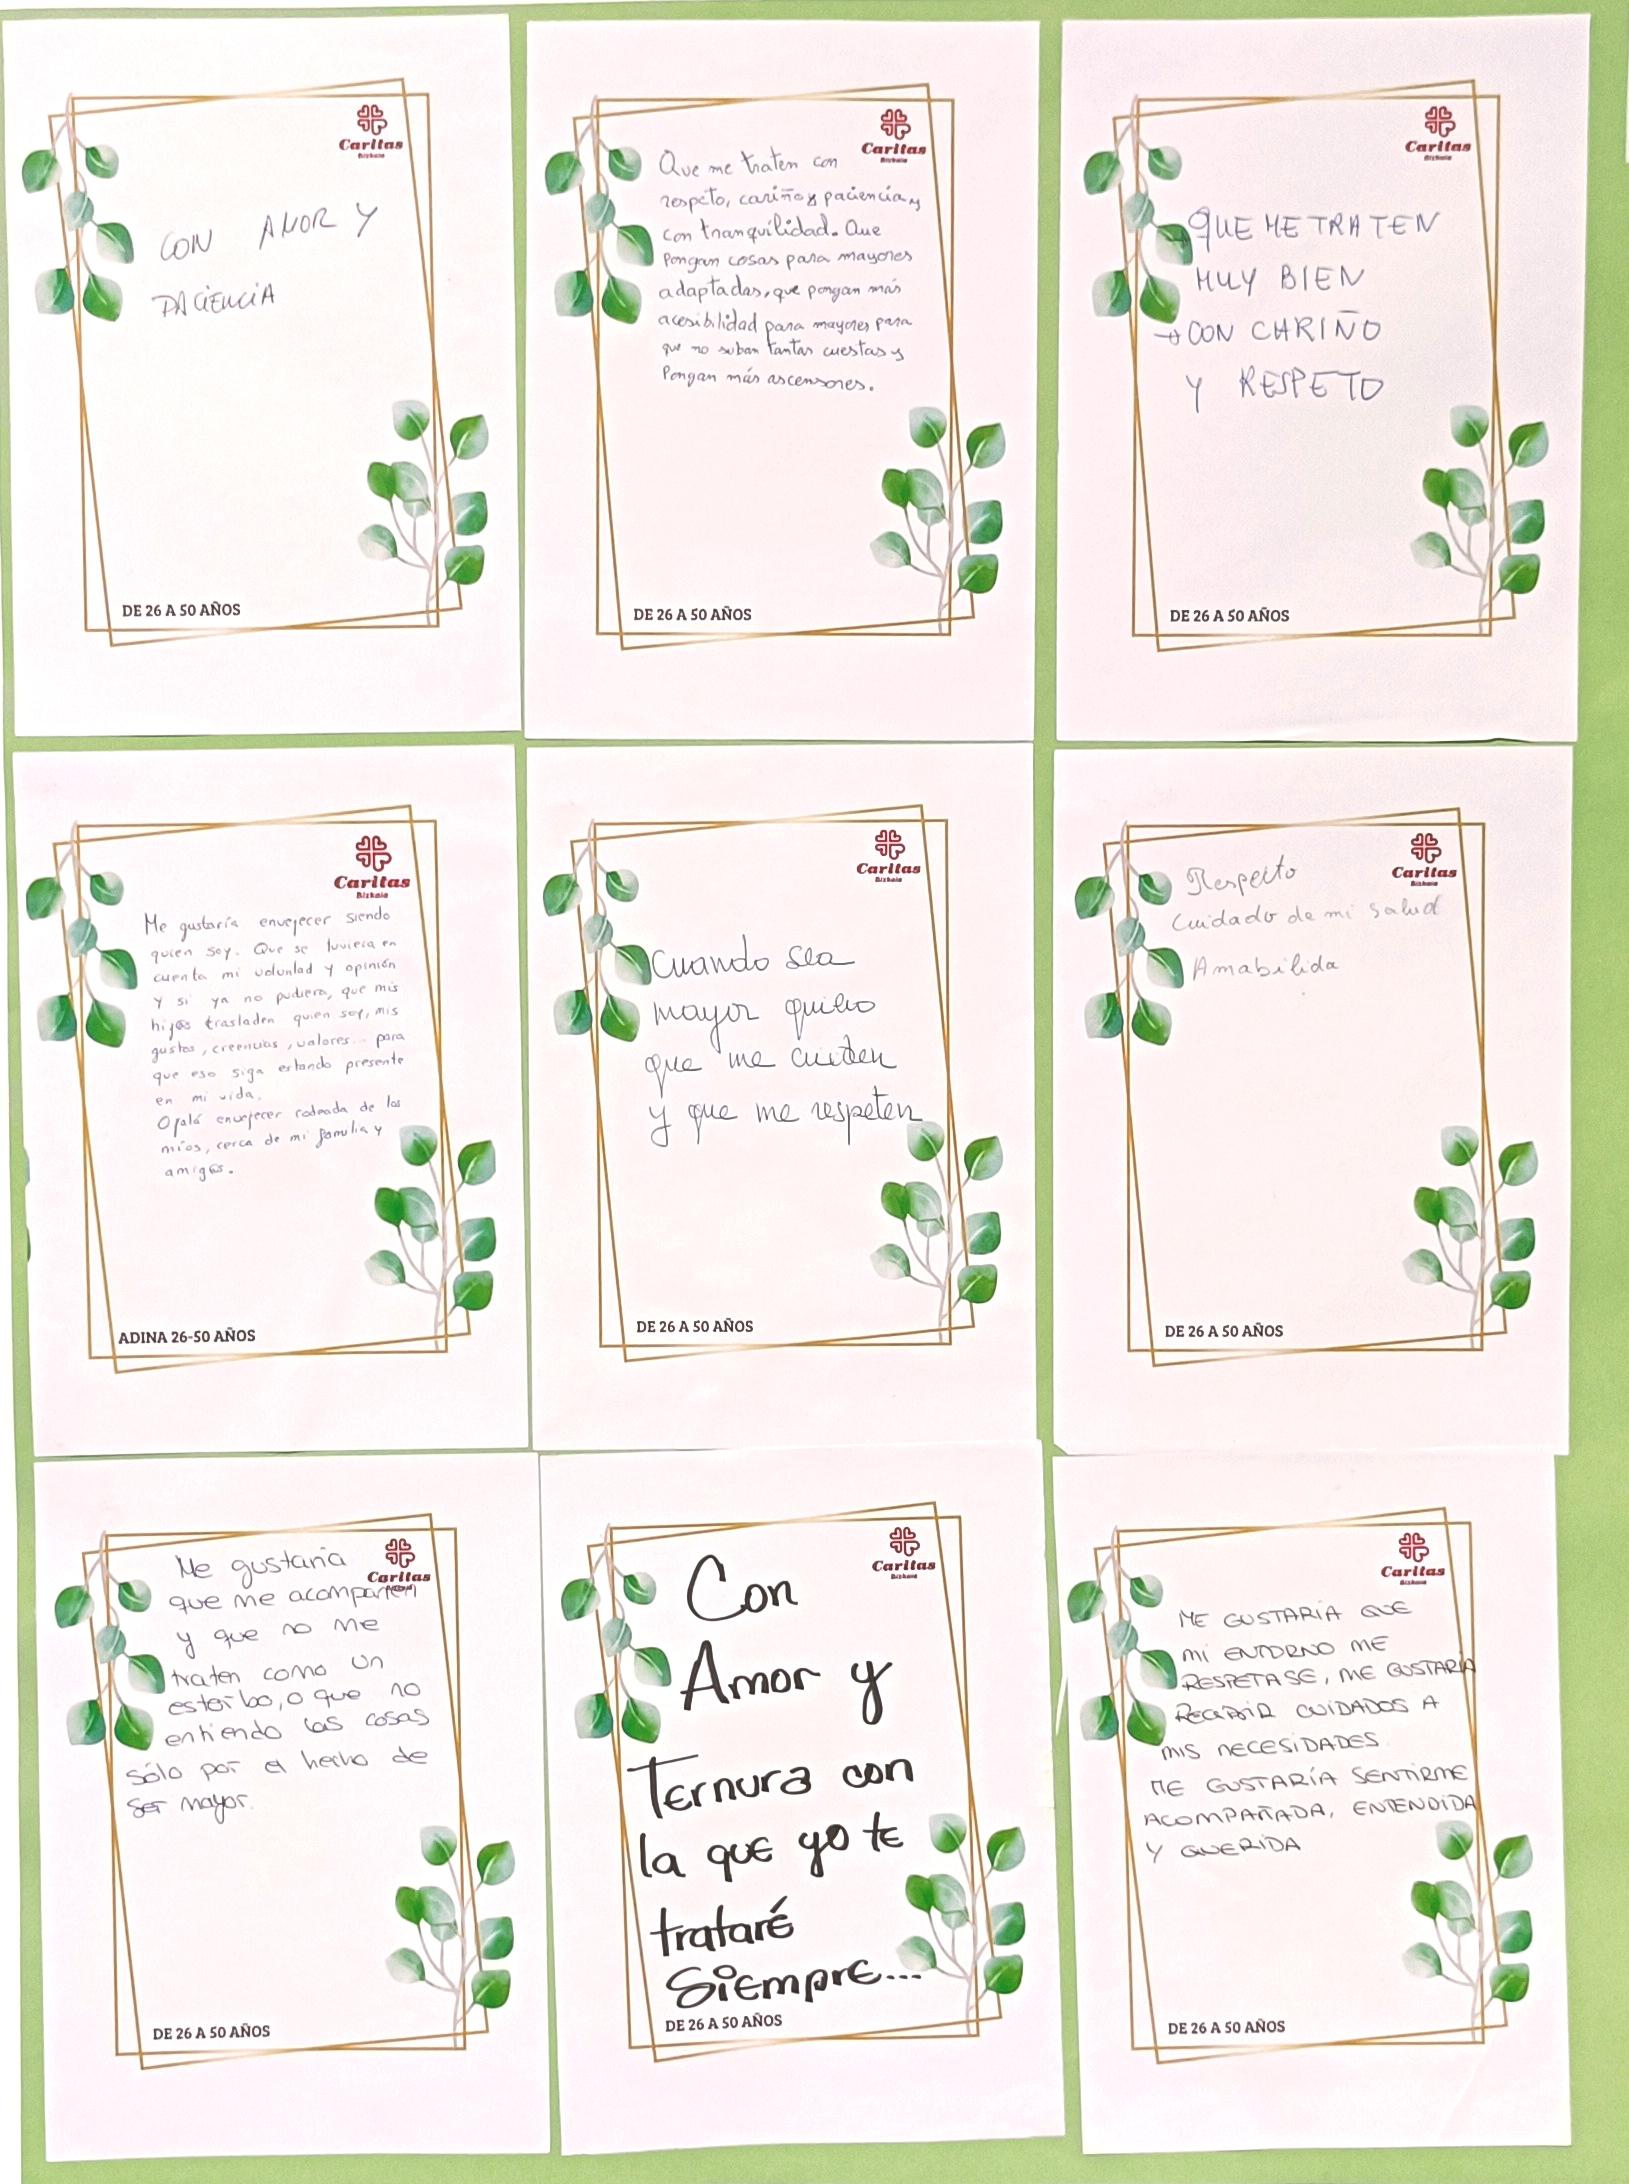 Caritas
Bizkaia
CON AMOR Y
PACIENCIA
DE 26 A 50 AÑOS
Caritas
Bizkaia
Que me traten con
respeto, cariño y paciencia y
con tranquilidad. Que
Pongan cosas para mayores
adaptadas, que pongan más
acesibilidad para mayores para
que no suban tantas cuestas y
Pongan más ascensores.
DE 26 A 50 AÑOS
Caritas
Bizkaia
→ QUE ME TRATEN
MUY BIEN
→ CON CARIÑO
Y RESPETO
DE 26 A 50 AÑOS
Caritas
Bizkaia
Me gustaría envejecer siendo
quien soy. Que se tuviera en
cuenta mi voluntad y opinión
Y si ya no pudiera, que mis
hij@s trasladen quien soy, mis
gustos, creencias, valores... para
que eso siga estando presente
en mi vida.
Ojalá envejecer rodeada de los
míos, cerca de mi familia y
amig@s.
ADINA 26-50 AÑOS
Caritas
Bizkaia
Cuando sea
mayor quiero
que me cuiden
y que me respeten
DE 26 A 50 AÑOS
Caritas
Bizkaia
Respecto
Cuidado de mi salud
Amabilida
DE 26 A 50 AÑOS
Caritas
Me gustaría
que me acompañen
y que no me
traten como un
estorbo, o que no
entiendo las cosas
sólo por el hecho de
ser mayor.
DE 26 A 50 AÑOS
Caritas
Bizkaia
Con
Amor y
Ternura con
la que yo te
trataré
Siempre...
DE 26 A 50 AÑOS
Caritas
Bizkaia
ME GUSTARÍA QUE
MI ENTORNO ME
RESPETASE, ME GUSTARÍA
RECIBIR CUIDADOS A
MIS NECESIDADES.
ME GUSTARÍA SENTIRME
ACOMPAÑADA, ENTENDIDA
Y QUERIDA
DE 26 A 50 AÑOS